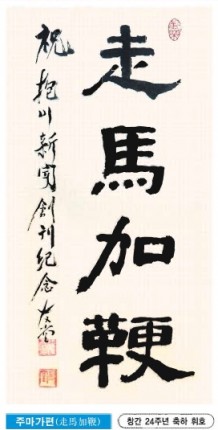 走馬加鞭
祝 抱川新聞創刊紀念
주마가편(走馬加鞭)
창간 24주년 축하 휘호